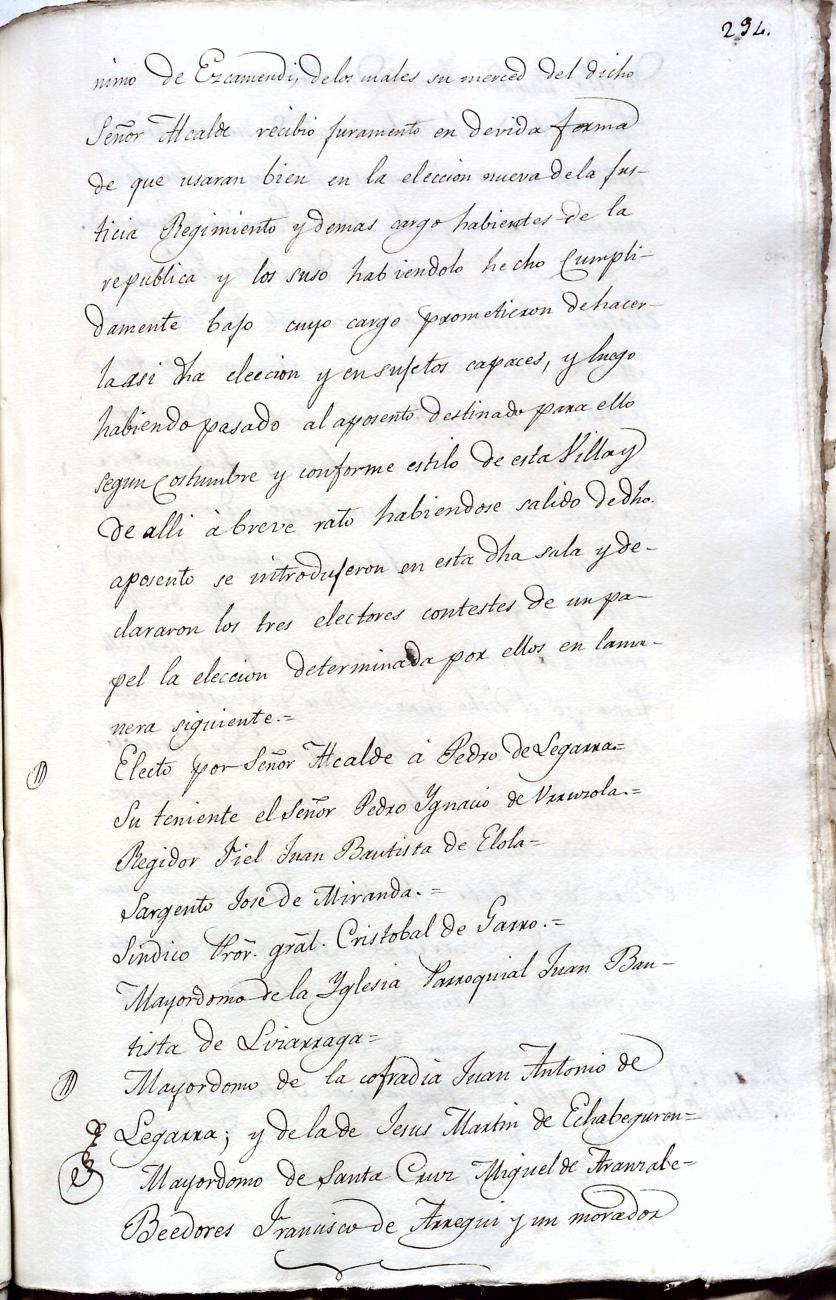 294.
nimo de Ezcamendi, delos cuales su merced del dicho
Señor Alcalde recibio juramento en devida forma
de que usaran bien en la eleccion nueva dela Jus-
ticia Regimiento y demas cargo habientes de la
republica y los suso habiendolo hecho Cumpli-
damente bajo cuyo cargo prometieron de hacer-
la asi dha eleccion y en sujetos capaces, y luego
habiendo pasado al aposento destinado para ello
segun Costumbre y conforme estilo de esta Villa y
de alli à breve rato habiendose salido de dho.
aposento se introdujeron en esta dha sala y de-
clararon los tres electores contestes de un pa-
pel la eleccion determinada por ellos en la ma-
nera siguiente.=
Electo por Señor Alcalde á Pedro de Legarra=
Su teniente el Señor Pedro Ygnacio de Urruzola.=
Regidor Fiel Juan Bautista de Elola=
Sargento Jose de Miranda.=
Sindico Pror. gral. Cristobal de Garro.=
Mayordomo de la Yglesia Parroquial Juan Bau-
tista de Lizarraga=
Mayordomo de la cofradia Juan Antonio de
Legarra; y de la de Jesus Martin de Echabeguren=
Mayordomo de Santa Cruz Miguel de Aranzabe=
Beedores Francisco de Arregui y un morador